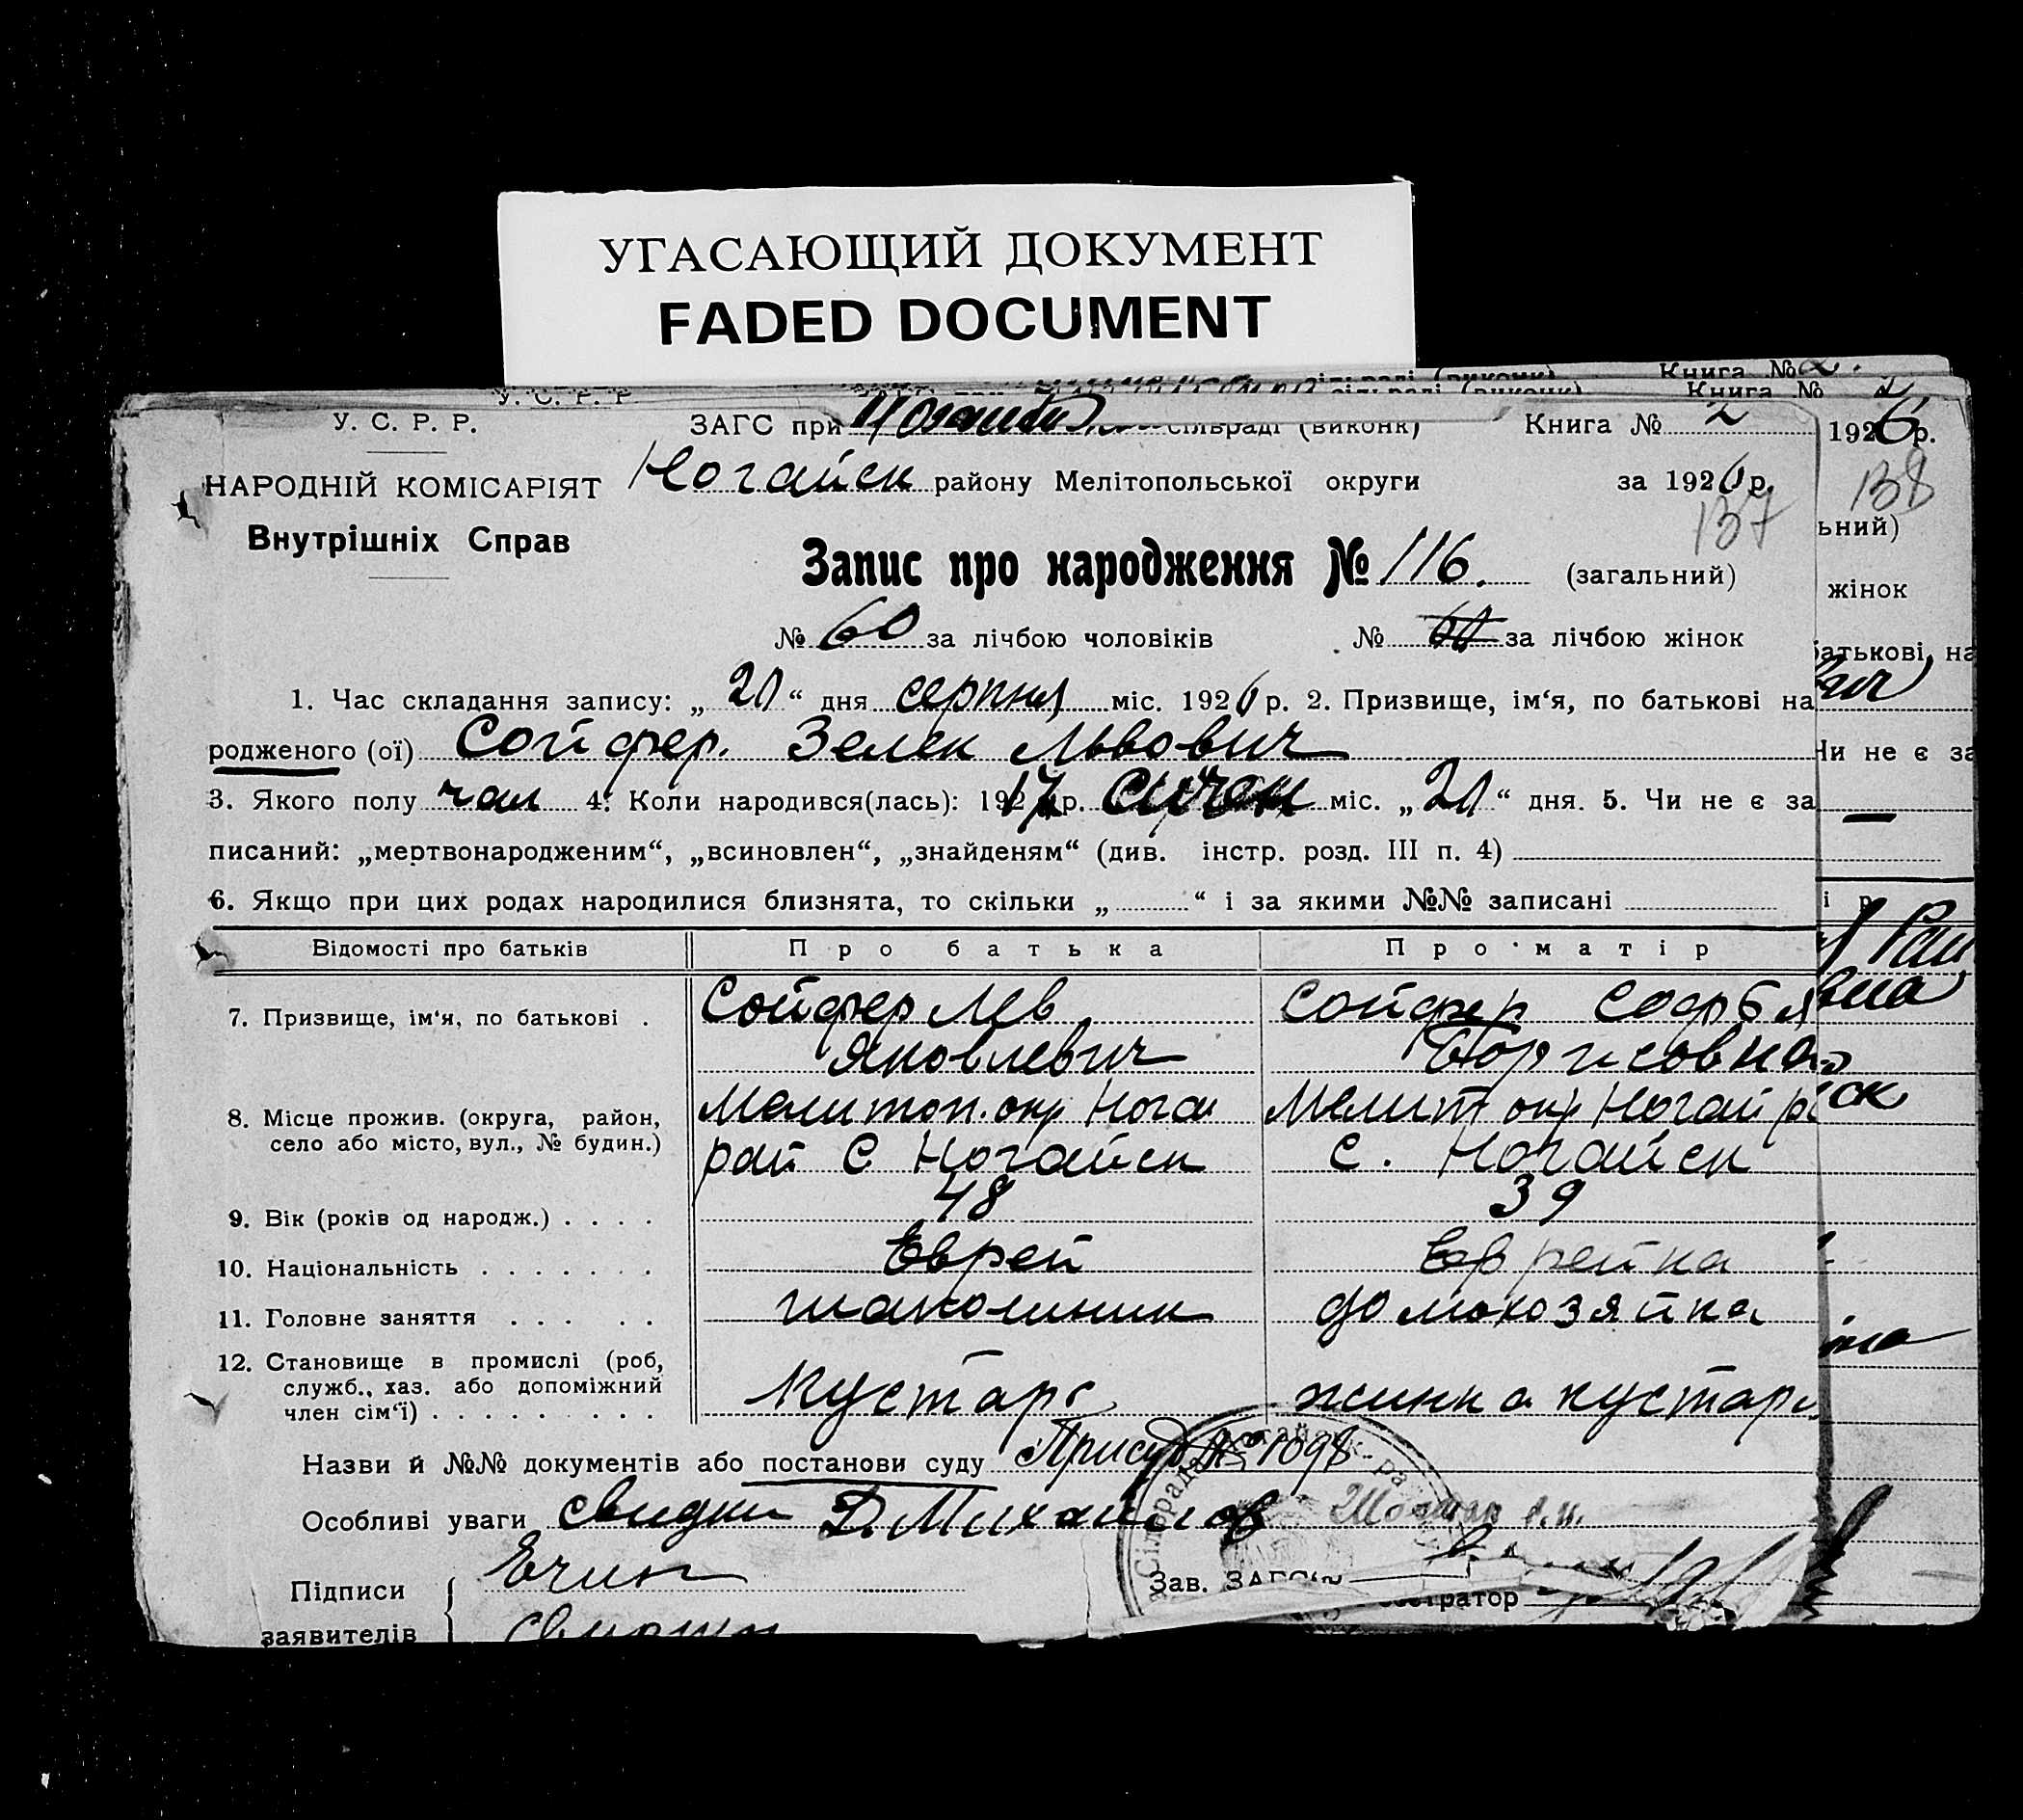 УГАСАЮЩИЙ ДОКУМЕНТ
FADED DOCUMENT
Книга №
Книга №
У. С. Р. Р.
ЗАГС при сільраді (виконк)
Книга № 2
1926 р.
НАРОДНІЙ КОМІСАРІЯТ
Ногайск району Мелітопольської округи
за 1926 р.
138
137
Внутрішніх Справ
ьний)
Запис про народження № 116. (загальний)
жінок
№ 60 за лічбою чоловіків
№ 60 за лічбою жінок
батькові на
1. Час складання запису: „ 20 “ дня серпня міс. 1926 р. 2. Призвище, ім‘я, по батькові на
родженого (ої) Сойфер. Зелек Львович
Чи не є за
3. Якого полу чол 4. Коли народився(лась): 1917 р. Січен міс. „ 20 “ дня. 5. Чи не є за
писаний: „мертвонародженим“, „всиновлен“, „знайденям“ (див. інстр. розд. III п. 4)
6. Якщо при цих родах народилися близнята, то скільки „ “ і за якими №№ записані
і р
Відомості про батьків
Про батька
Про матір
7. Призвище, ім‘я, по батькові .
Сойфер Лев
Яковлевич
Сойфер Софья
Борисовна
8. Місце прожив. (округа, район,
село або місто, вул., № будин.)
Мелитоп. окр Нога
рай С Ногайск
Мелит окр Ногай р
С. Ногайск
ск
9. Вік (років од народж.) . . . .
48
39
10. Національність . . . . . . .
Еврей
Еврейка
11. Головне заняття . . . . .
домохозяйка
12. Становище в промислі (роб,
служб., хаз. або допоміжний
член сім‘ї) . . . . . . . . .
Кустарь
жинка кустаря
Назви й №№ документів або постанови суду Присуд № 1098
Особливі уваги свидки Д. Михайлов
Підписи
заявителів
Зав. ЗАГС‘у